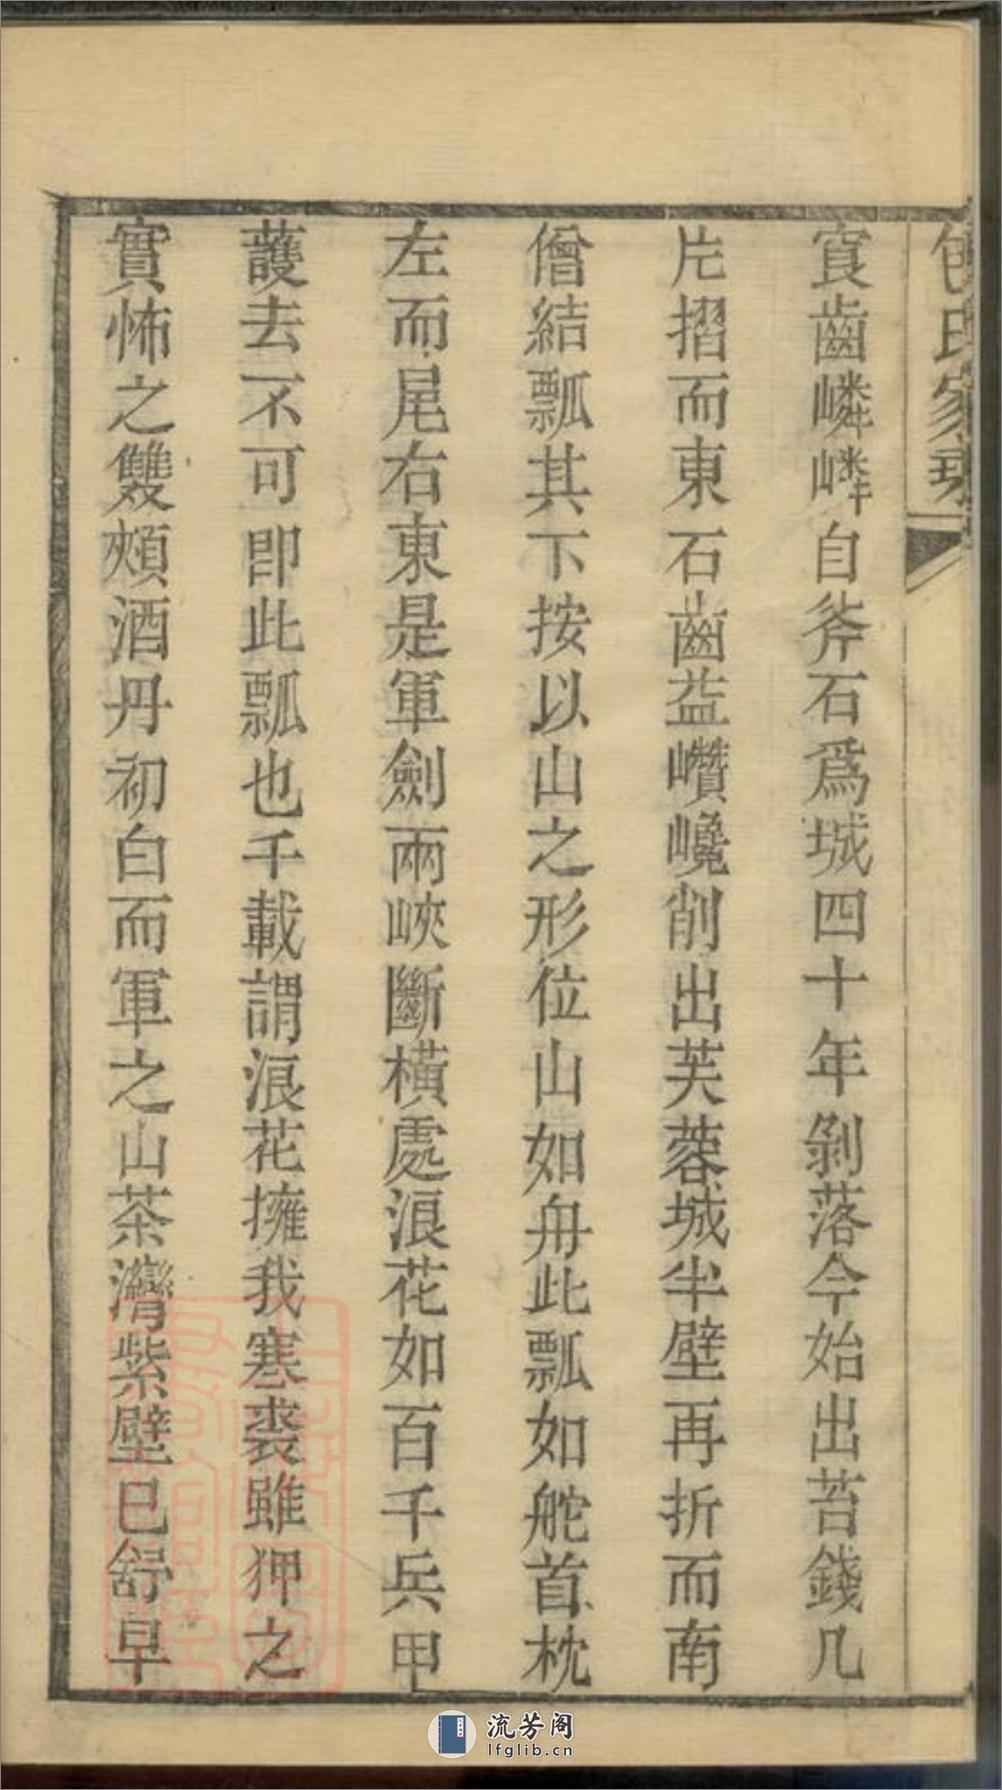 包氏家乘
㝠齒嶙嶙自斧石爲城四十年剝落今始出苔錢几
片摺而東石齒益巑巉削出芙蓉城半壁再折而南
僧結瓢其下按以山之形位山如舟此瓢如舵首枕
左而尾右東是軍劍兩峽斷橫處浪花如百千兵甲
護去不可卽此瓢也千載謂浪花擁我寒裘雖狎之
實怖之雙頰酒丹初白而軍之山茶灣紫壁已舒早
流芳阁
lfglib.cn